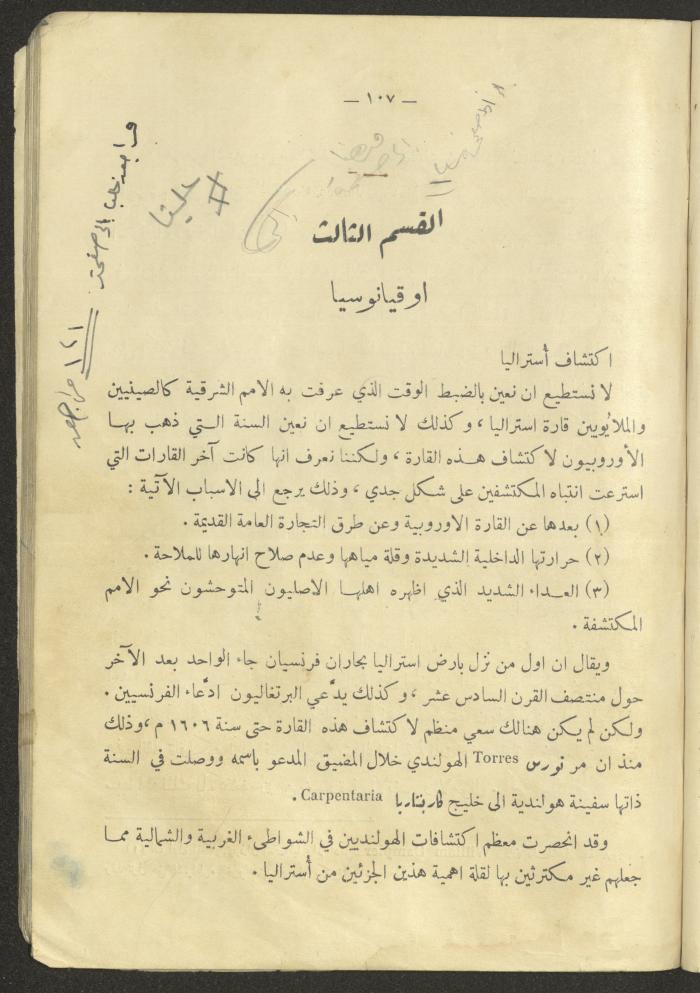 — ١٠٧ —
القسم الثالث
اوقيانوسيا
اكتشاف أستراليا
لا نستطيع ان نعين بالضبط الوقت الذي عرفت به الامم الشرقية كالصينيين
والملايُويين قارة استراليا ، وكذلك لا نستطيع ان نعين السنة التي ذهب بها
الأوروبيون لاكتشاف هذه القارة ، ولكننا نعرف انها كانت آخر القارات التي
استرعت انتباه المكتشفين على شكل جدي ، وذلك يرجع الى الاسباب الآتية :
(١) بعدها عن القارة الاوروبية وعن طرق التجارة العامة القديمة .
(٢) حرارتها الداخلية الشديدة وقلة مياهها وعدم صلاح انهارها للملاحة .
(٣) العداء الشديد الذي اظهره اهلها الاصليون المتوحشون نحو الامم
المكتشفة .
ويقال ان اول من نزل بارض استراليا بحاران فرنسيان جاء الواحد بعد الآخر
حول منتصف القرن السادس عشر ، وكذلك يدَّعي البرتغاليون ادّعاء الفرنسيين .
ولكن لم يكن هنالك سعي منظم لاكتشاف هذه القارة حتى سنة ١٦٠٦ م ، وذلك
منذ ان مر تورس Torres الهولندي خلال المضيق المدعو باسمه ووصلت في السنة
ذاتها سفينة هولندية الى خليج كاربنتاريا Carpentaria .
وقد انحصرت معظم اكتشافات الهولنديين في الشواطىء الغربية والشمالية مما
جعلهم غير مكترثين بها لقلة اهمية هذين الجزئين من أستراليا .